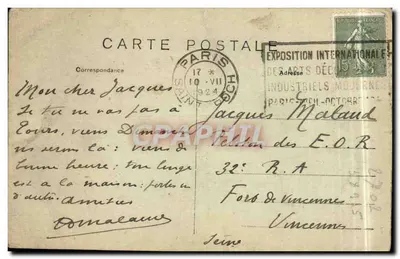 CARTE POSTALE
Correspondance
Adresse
PARIS
17 *
10 - VII
1924
EXPOSITION INTERNATIONALE
DES ARTS DÉCO
INDUSTRIELS MODERNES
PARIS AVRIL-OCTOBRE
Mon cher Jacques
Si tu ne vas pas à
Tours, viens Dimanche
ns serons là: viens de
bonne heure: ton linge
est à la maison:
d'autre. amitiés
Jacques Malaud
Peloton des E.O.R
32e R.A
Fort de Vincennes
Vincennes
Seine
Delcampe